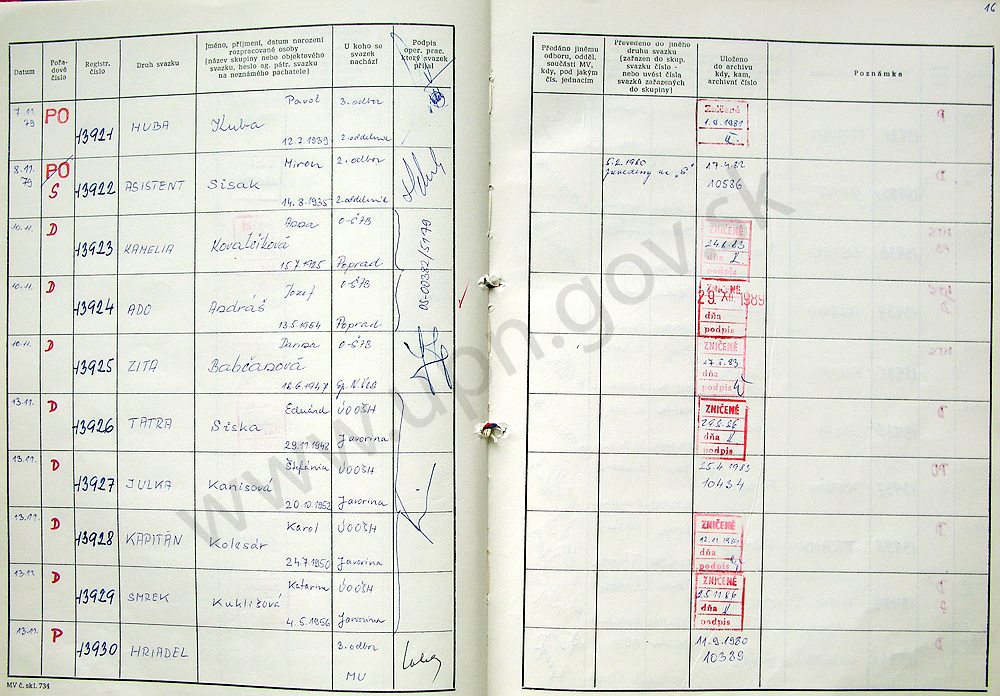 16
Datum
Pořadové číslo
Registr. číslo
Druh svazku
Jméno, příjmení, datum narození
rozpracované osoby
(název skupiny nebo objektového
svazku, heslo ag. pátr. svazku
na neznámého pachatele)
U koho se
svazek
nachází
Podpis
oper. prac.
který svazek
přijal
Předáno jinému
odboru, odděl.
součásti MV,
kdy, pod jakým
čís. jednacím
Převedeno do jiného
druhu svazku
(zařazen do skup.
svazku číslo -
nebo uvést čísla
svazků zařazených
do skupiny)
Uloženo
do archivu
kdy, kam,
archivní číslo
Poznámka
7.11. 79 PO 13921 HUBA Pavol Kuba 12.2.1939 3. odbor 2. oddelenie Zničené 1.9.1981
8.11. 79 PO S 13922 ASISTENT Miron Sisak 14.8.1935 2. odbor 2. oddelenie 5.2.1980 na "S" 17.4.82 10586
10.11. D 13923 KAMELIA Anna Kovalčíková 15.7.1925 O-ŠtB Poprad ZNIČENÉ 24.6.83 dňa podpis
OS-00382/S-179
10.11. D 13924 ADO Jozef András 13.5.1964 O-ŠtB Poprad 29. XII. 1989 dňa podpis
10.11. D 13925 ZITA Darina Babčanová 16.6.1947 O-ŠtB Sp. N. Ves ZNIČENÉ 17.5.83 dňa podpis
13.11. D 13926 TATRA Eduárd Siska 29.11.1948 ÚOOŠH Javorina ZNIČENÉ 29.8.86 dňa podpis
13.11. D 13927 JULKA Štefánia Kanisová 20.10.1952 ÚOOŠH Javorina 25.4.1983 10434
13.11. D 13928 KAPITÁN Karol Kolesár 24.7.1950 ÚOOŠH Javorina ZNIČENÉ dňa podpis
13.11. D 13929 SMREK Katarína Kuklišová 4.5.1956 ÚOOŠH Javorina ZNIČENÉ 25.11.86 dňa podpis
13.11. P 13930 HRIADEL 3. odbor MV 11.9.1980 10389
MV č. skl. 734
www.upn.gov.sk